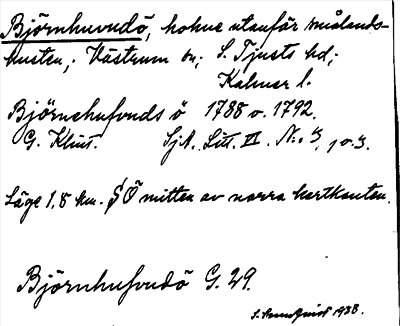 Björnhuvudö, holme utanför smålands-
kusten, Västrum sn; S. Tjusts hd;
Kalmar l.
Björnehufvuds ö 1788 o. 1792.
G. Klint. SjA. Litt. VI. N:o 3, 1 o. 3.
Läge 1,8 km. SÖ mitten av norra kartkanten.
Björnhufvudö G. 29.
1938.